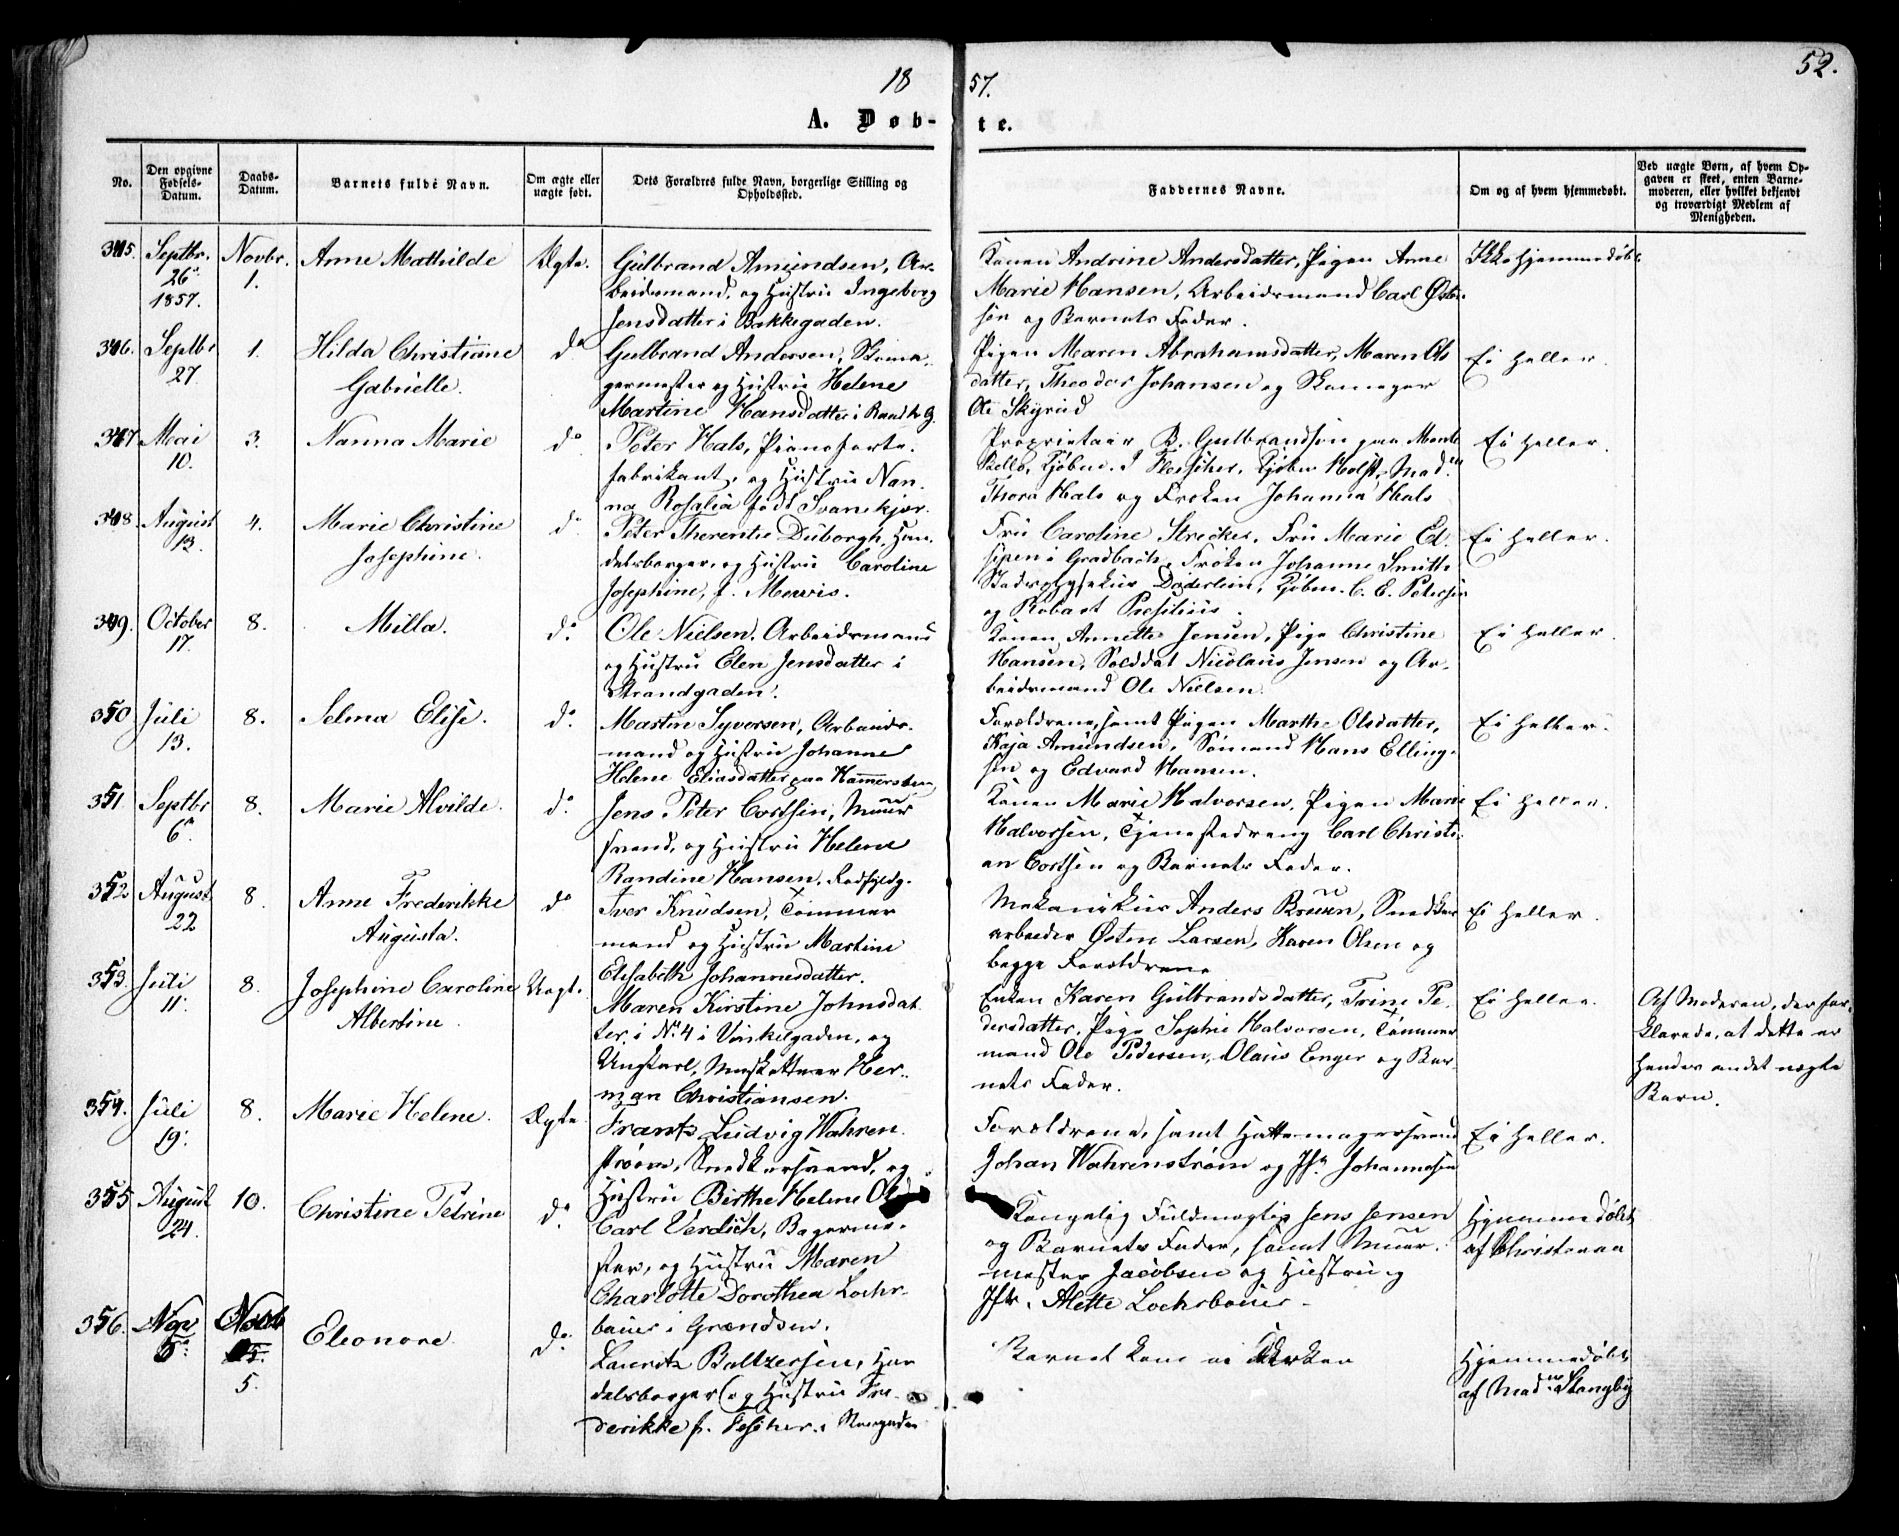 52.
18 57.
A. Døb- te.
No.
Den opgivne Fødsels-Datum.
Daabs-Datum.
Barnets fulde Navn.
Om ægte eller uægte født.
Dets Forældres fulde Navn, borgerlige Stilling og Opholdssted.
Faddernes Navne.
Om og af hvem hjemmedøbt.
Ved uægte Børn, af hvem Opgaven er skeet, enten Barnemoderen, eller hvilket bekjendt og troværdigt Medlem af Menigheden.
345. Septbr. 26de 1857. Novbr. 1. Anne Mathilde Ægte.
Gulbrand Amundsen, Ar-
beidsmand, og Hustru Ingeborg
Jensdatter i Bakkegaden.
Konen Andrine Andersdatter, Pigen Anne
Marie Hansen, Arbeidsmand Carl Øster-
søn og Barnets Fader.
Ikke hjemmedøbt
346. Septbr 27. 1. Hilda Christiane
Gabrielle. do
Gulbrand Andersen, Skoma-
germester og Hustru Helene
Martine Hansdatter i
Pigen Maren Abrahamsdatter, Maren Ols
datter, Theodor Johansen og Skomager
Ole Skyrud
Ei heller.
347 Mai 10. 3. Nanna Marie do
Peter Hals, Pianoforte-
fabrikant, og Hustru Nan-
na Rosalia født Svanekjær.
Proprietair B. Gulbrandson paa
Kjøbm. Holst, Madm
Thora Hals og Frøken Johanna Hals
Ei heller.
348. August 13. 4. Marie Christine
Josephine. do
Peter Therentie Duborgh, Han-
delsborger, og Hustru Caroline
Josephine, f. Mewis.
Fru Caroline Strecker, Fru Marie
i Gradbach, Frøken Johanne Smitth
Stadsphysikus Døderlein, Kjøbm. C. E. Petersen
og Robart
Ei heller.
349. October 17. 8. Milla. do.
Ole Nielsen, Arbeidsmand
og Hustru Elen Jensdatter i
Strandgaden.
Konen Annette Jensen, Pige Christine
Hansen, Soldat Nicolaus Jensen og Ar-
beidsmand Ole Nielsen.
Ei heller.
350 Juli 13. 8. Selma Elise. do.
Martin Syversen, Arbeids-
mand og Hustru Johanne
Helene Eliasdatter paa Kammersbon
Forældrene, samt Pigen Marthe Olsdatter,
Kaja Amundsen, Sømand Hans Elling-
sen og Edvard Hansen.
Ei heller.
351 Septbr 6te 8. Marie Alvilde. do.
Jens Peter Cortsen, Muur-
svend, og Hustru Helene
Randine Hansen,
Konen Marie Halvorsen, Pigen Marie
Halvorsen, Tjenestedreng Carl Christi-
an Cortsen og Barnets Fader.
Ei heller.
352 August 22 8. Anne Frederikke
Augusta. do
Iver Knudsen, Tømmer
mand og Hustru Martine
Elisabeth Johannesdatter.
Mekanikus Anders Bruun, Snedker
arbeider Østen Larsen, Karen Olsen og
begge Forældrene
Ei heller.
353. Juli 11. 8. Josephine Caroline
Albertine. Uægt.
Maren Kirstine Johnsdat
ter, i No 4 i Vinkelgaden, og
Ungkarl, Musketteer Her-
man Christiansen.
Enken Karen Gulbrandsdatter, Trine Pe-
dersdatter, Pige Sophie Halvorsen, Tømmer
mand Ole Pedersen, Olaus Enger og Bar-
nets Fader.
Ei heller.
Af Moderen, der for-
klarede, at dette er
hendes andet uægte
Barn.
354. Juli 19. 8. Marie Helene. Ægte
Frantz Ludvig Wahren-
strøm, Snedkersvend, og
Hustru Birthe Helene
Forældrene, samt Hattemagersvend
Johan Wahrenstrøm og Jfr. Johannesen
Ei heller.
355 August 24. 10. Christine Petrine do.
Carl Verdich, Bagerme-
ster, og Hustru Maren
Charlotte Dorothea Lochs-
bauer i Grændsen.
Kongelig Fuldmægtig Jens Jensen
og Barnets Fader, samt Muur-
mester Jacobsen og Hustru og
Jfr. Alette Lochsbauer.
Hjemmedøbt
af
356. Nov 5. Novb
5. Eleonore. do.
Lauritz Baltzersen, Han
delsborger og Hustru Fre-
derikke f.
Barnet kom ei i Kirken
Hjemmedøbt
af Madm Stangby